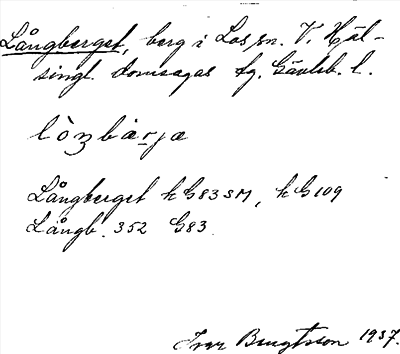 Långberget, berg i Los sn. V. Häl-
singl. domsagas fg. Gävleb. l.
lòŋbær̯jæ
Långberget hG83SM, hG109
Långb. 352 G83.
Ivar Bengtsson 1937.